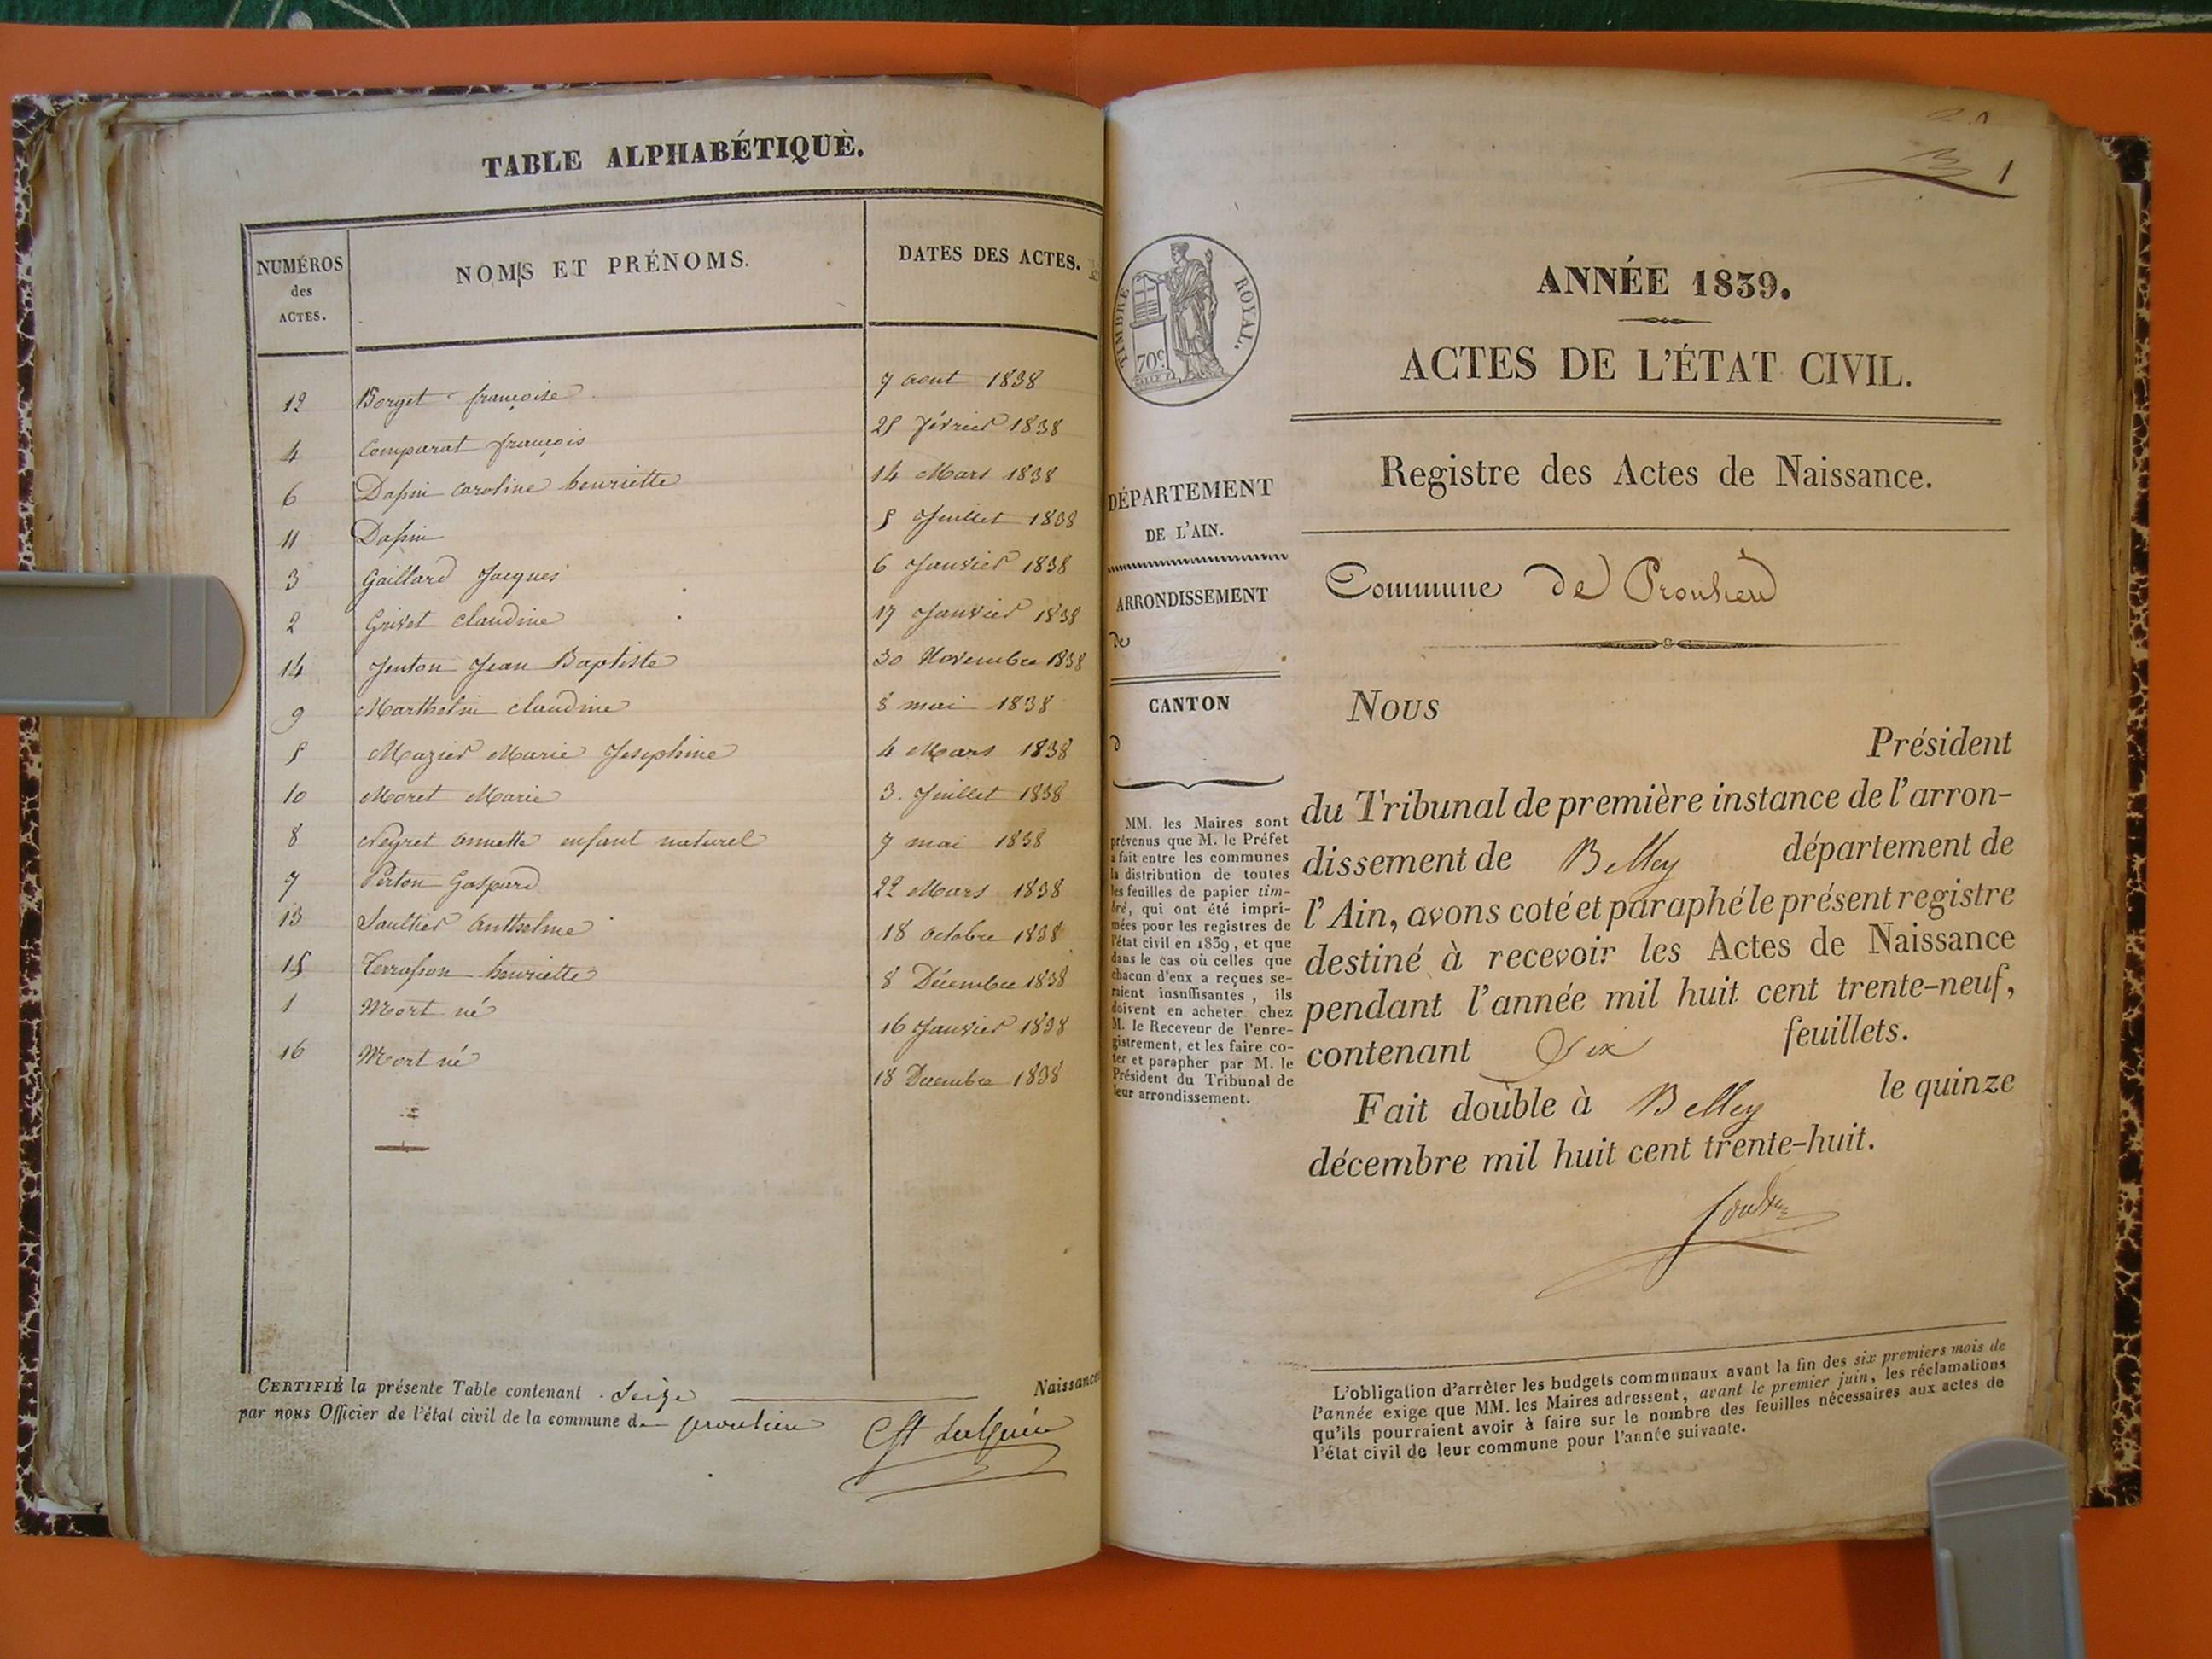 TABLE ALPHABÉTIQUE.
NUMÉROS
des
ACTES.
NOMS ET PRÉNOMS.
DATES DES ACTES.
12 Borget françoise 7 aout 1838
4 Comparat françois 25 février 1838
6 Dassin caroline henriette 14 Mars 1838
11 Dassin 5 Juillet 1838
3 Gaillard Jacques 6 Janvier 1838
2 Grivet claudine 17 Janvier 1838
14 Jenton Jean Baptiste 30 Novembre 1838
9 Marthelin claudine 8 mai 1838
5 Mazier Marie Josephine 4 Mars 1838
10 Moret Marie 3 Juillet 1838
8 Neyret annette enfant naturel 7 mai 1838
7 Perton Gaspard 22 Mars 1838
13 Saultier anthelme 18 octobre 1838
15 Terrasson henriette 8 Décembre 1838
1 Mort né 16 Janvier 1838
16 Mort né 18 Decembre 1838
CERTIFIÉ la présente Table contenant Seize Naissances
par nous Officier de l'état civil de la commune de proulieu
1
TIMBRE ROYAL.
70c.
ANNÉE 1839.
ACTES DE L'ÉTAT CIVIL.
Registre des Actes de Naissance.
DÉPARTEMENT
DE L'AIN.
ARRONDISSEMENT
de
CANTON
d
MM. les Maires sont
prévenus que M. le Préfet
a fait entre les communes
la distribution de toutes
les feuilles de papier tim-
bré, qui ont été impri-
mées pour les registres de
l'état civil en 1839, et que
dans le cas où celles que
chacun d'eux a reçues se-
raient insuffisantes, ils
doivent en acheter chez
M. le Receveur de l'enre-
gistrement, et les faire co-
ter et parapher par M. le
Président du Tribunal de
leur arrondissement.
Commune de Proulieu
Nous
Président
du Tribunal de première instance de l'arron-
dissement de Belley département de
l'Ain, avons coté et paraphé le présent registre
destiné à recevoir les Actes de Naissance
pendant l'année mil huit cent trente-neuf,
contenant Six feuillets.
Fait double à Belley le quinze
décembre mil huit cent trente-huit.
L'obligation d'arrêter les budgets communaux avant la fin des six premiers mois de
l'année exige que MM. les Maires adressent, avant le premier juin, les réclamations
qu'ils pourraient avoir à faire sur le nombre des feuilles nécessaires aux actes de
l'état civil de leur commune pour l'année suivante.